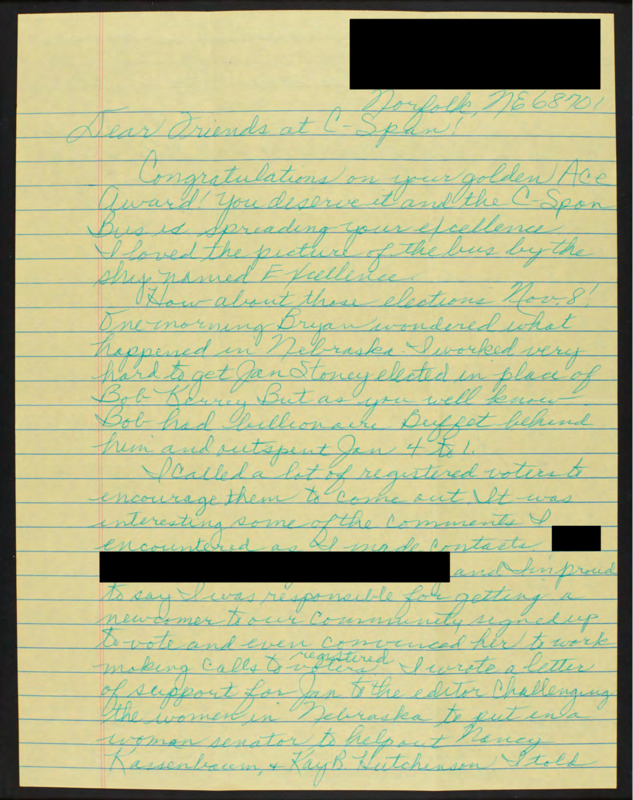 Norfolk, NE 68701
Dear Friends at C-Span!
Congratulations on your golden Ace
Award! You deserve it and the C-Span
Bus is spreading your excellence
I loved the picture of the bus by the
ship named Excellence.
How about those elections Nov. 8!
One morning Bryan wondered what
happened in Nebraska. I worked very
hard to get Jan Stoney elected in place of
Bob Kerrey But as you well know
Bob had billionaire Buffet behind
him and outspent Jan 4 to 1.
I called a lot of registered voters to
encourage them to come out. It was
interesting some of the comments I
encountered as I made contacts.
and I'm proud
to say I was responsible for getting a
newcomer to our community signed up
to vote and even convinced her to work
making calls to registered voters. I wrote a letter
of support for Jan to the editor challenging
the women in Nebraska to put in a
woman senator to help out Nancy
Kassenbaum, & Kay B. Hutchinson. I told